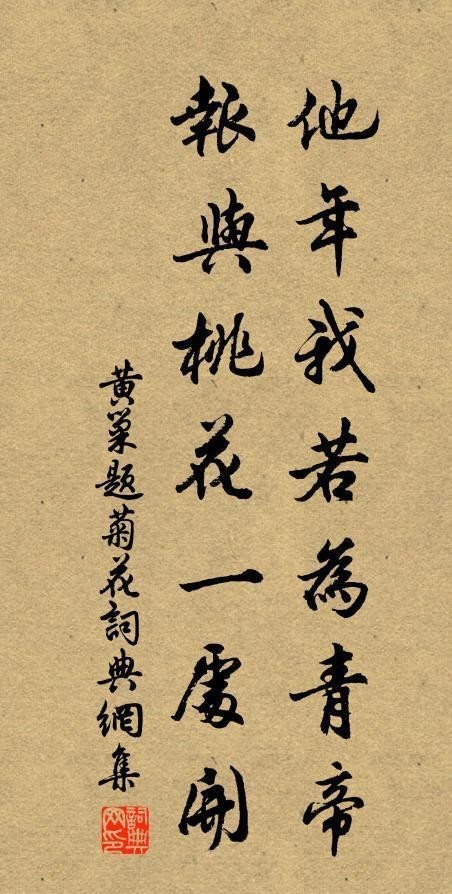 他年我若為青帝
報與桃花一處開
黃巢題菊花詞典網集
詞典網印